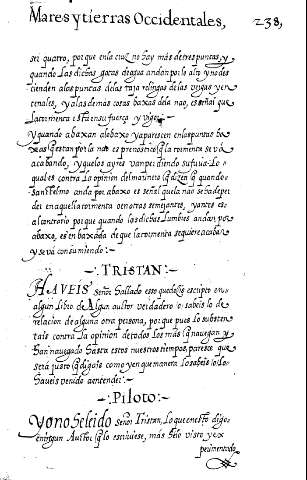 Mares y tierras Occidentales, 238,
ser quatro, porque en la cruz no hay mas de tres puntas, y
quando las dichas gotas de agua andan por lo alto y no des
cienden a las puntas de las
y a las demas cosas baxas de la nao, es señal que
la tormenta esta en su fuerça y vigor
Y quando abaxan alo baxo y aparescen en las puntas ba
xas q̃ estan por la nao es pronostico q̃ la tormenta se va
acabando, y que los ayres van perdiendo su furia Lo
qual es contra la opinion del marinero q̃ dizen q̃ quando
Santhelmo anda por abaxo es señal que la nao se ha de per
der en aquella tormenta o en otras semejantes, y antes es
al contrario porque quando las dichas lumbres andan por
abaxo, es en baxada de que la tormenta se quiere acabar
y se va consumiendo:~
·:TRISTAN:~
HAVEIS señor hallado esso que dezis escripto en
algun libro de Algun auttor verdadero o sabeis lo de
relacion de alguna otra persona, porque pues lo susten
tais contra la opinion de todos los mas q̃ navegan y
han navegado hasta estos nuestros tiempos, paresce que
sera justo q̃ digais como y en que manera lo sabeis o lo
haveis venido a entender:~
·:PILOTO:~
YO no he leido señor Tristan, lo que en esto digo
en ningun Auttor q̃ lo escriviese, mas helo visto y ex
perimentado